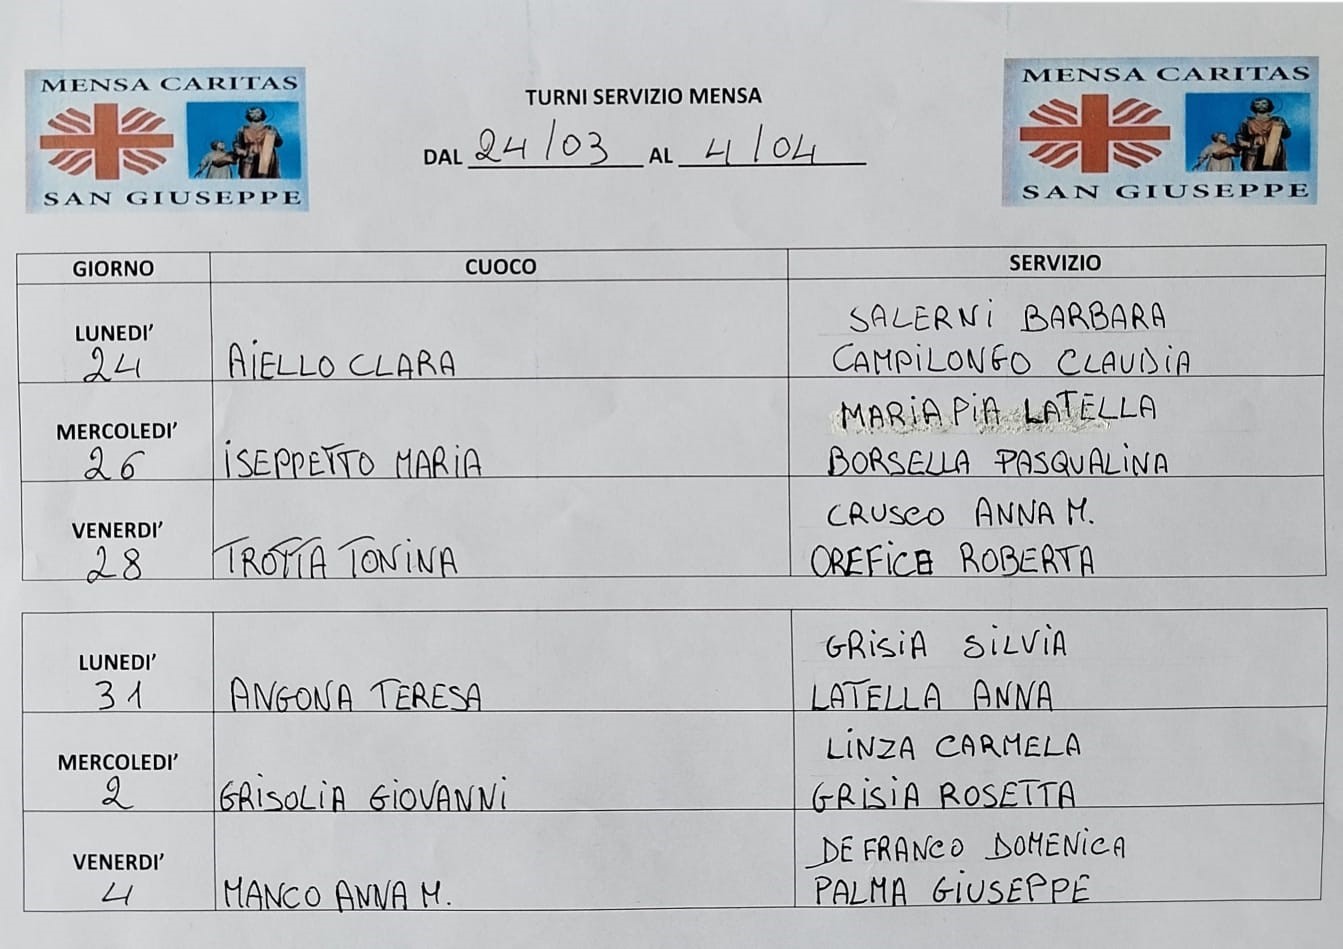 MENSA CARITAS
SAN GIUSEPPE
TURNI SERVIZIO MENSA
DAL 24/03 AL 4/04
MENSA CARITAS
SAN GIUSEPPE
GIORNO CUOCO SERVIZIO
SALERNI BARBARA
LUNEDI'
24 AIELLO CLARA CAMPILONGO CLAUDIA
MARIA PIA LATELLA
MERCOLEDI'
26 ISEPPETTO MARIA BORSELLA PASQUALINA
CRUSCO ANNA M.
VENERDI'
28 TROTTA TONINA OREFICE ROBERTA
GRISIA SILVIA
LUNEDI'
31 ANGONA TERESA LATELLA ANNA
LINZA CARMELA
MERCOLEDI'
2 GRISOLIA GIOVANNI GRISIA ROSETTA
DE FRANCO DOMENICA
VENERDI'
4 MANCO ANNA M. PALMA GIUSEPPE